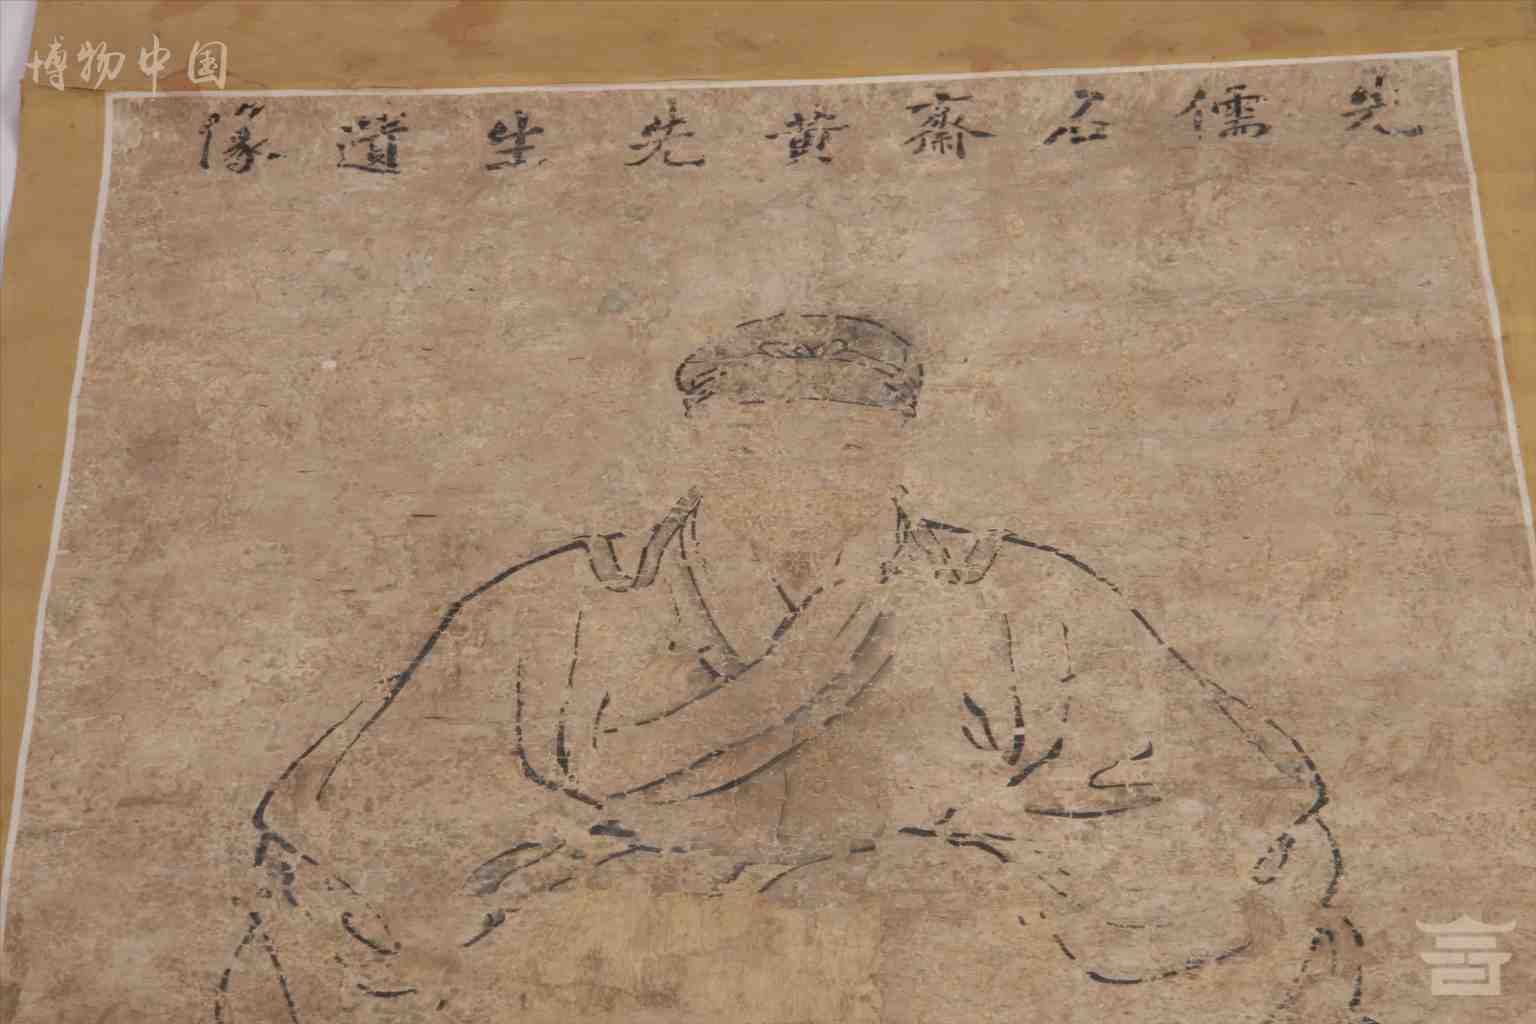 博物中国
先儒石齋黄先生遺像